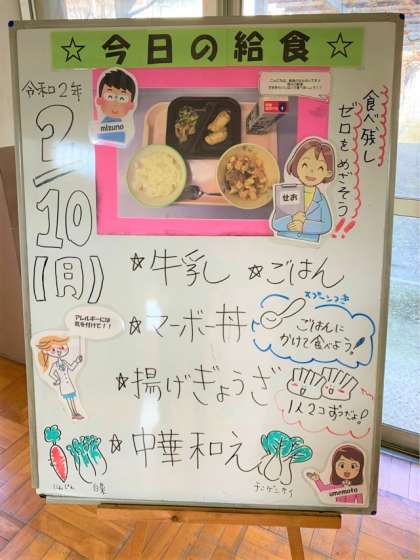 ☆今日の給食☆
令和2年
2/10(月)
mizuno
せお
食べ残し
ゼロをめざそう!!
☆牛乳 ☆ごはん
☆マーボー丼
スプーンつき
ごはんに
かけて食べよう!
アレルギーには
気を付けて!!
☆揚げぎょうざ
1人2コずつだよ!
☆中華和え
にんじん
白菜
チンゲンサイ
umemoto